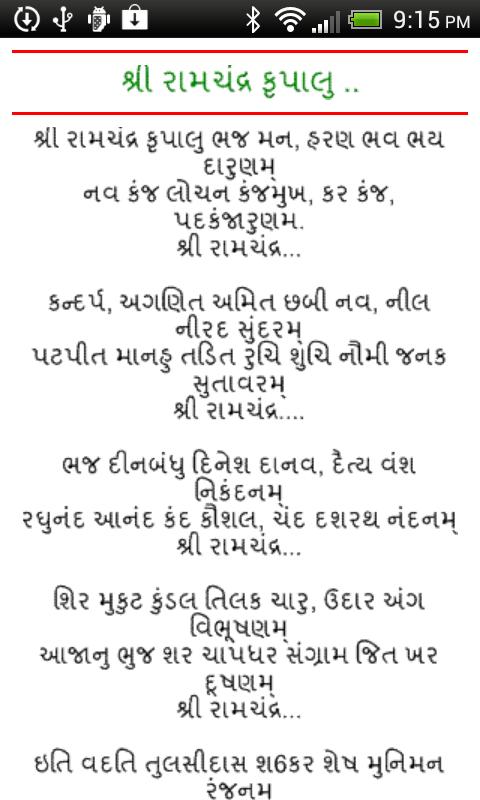 9:15 PM
શ્રી રામચંદ્ર કૃપાલુ ..
શ્રી રામચંદ્ર કૃપાલુ ભજ મન, હરણ ભવ ભય
દારુણમ્
નવ કંજ લોચન કંજમુખ, કર કંજ,
પદકંજારુણમ.
શ્રી રામચંદ્ર...
કન્દર્પ, અગણિત અમિત છબી નવ, નીલ
નીરદ સુંદરમ્
પટપીત માનહુ તડિત રુચિ શુચિ નૌમી જનક
સુતાવરમ્
શ્રી રામચંદ્ર....
ભજ દીનબંધુ દિનેશ દાનવ, દૈત્ય વંશ
નિકંદનમ્
રઘુનંદ આનંદ કંદ કૌશલ, ચંદ દશરથ નંદનમ્
શ્રી રામચંદ્ર...
શિર મુકુટ કુંડલ તિલક ચારુ, ઉદાર અંગ
વિભૂષણમ્
આજાનુ ભુજ શર ચાપધર સંગ્રામ જિત ખર
દૂષણમ્
શ્રી રામચંદ્ર...
ઇતિ વદતિ તુલસીદાસ શ6કર શેષ મુનિમન
રંજનમ